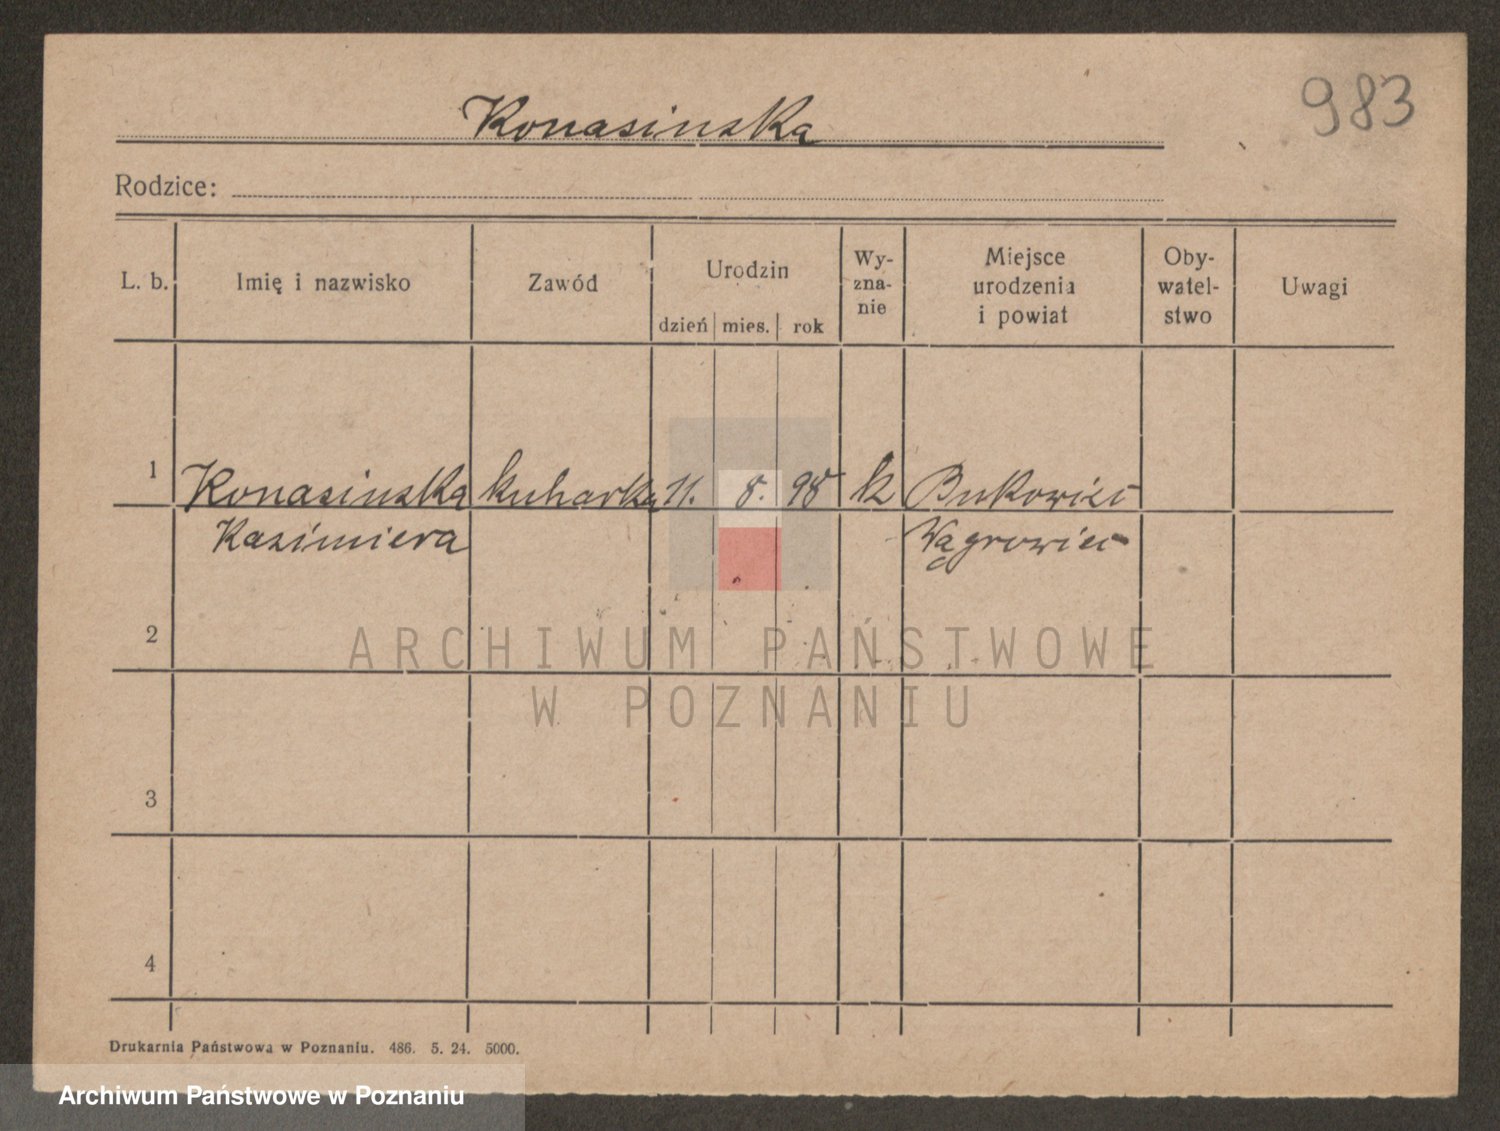 983
Konasinska
Rodzice:
L. b. Imię i nazwisko Zawód Urodzin dzień mies. rok Wy-zna-nie Miejsce urodzenia i powiat Oby-watel-stwo Uwagi
1 Konasinska kuharka 11. 8. 98 k Bukowiec
Kazimiera Wągrowiec
2
ARCHIWUM PAŃSTWOWE
W POZNANIU
3
4
Drukarnia Państwowa w Poznaniu. 486. 5. 24. 5000.
Archiwum Państwowe w Poznaniu